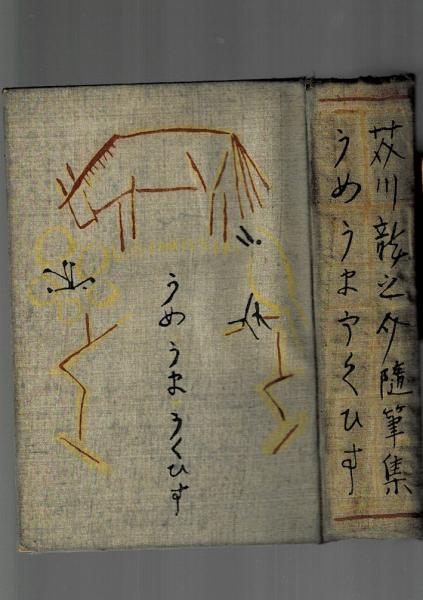 うめ うま うくひす
芥川龍之介隨筆集
うめ うま うくひす